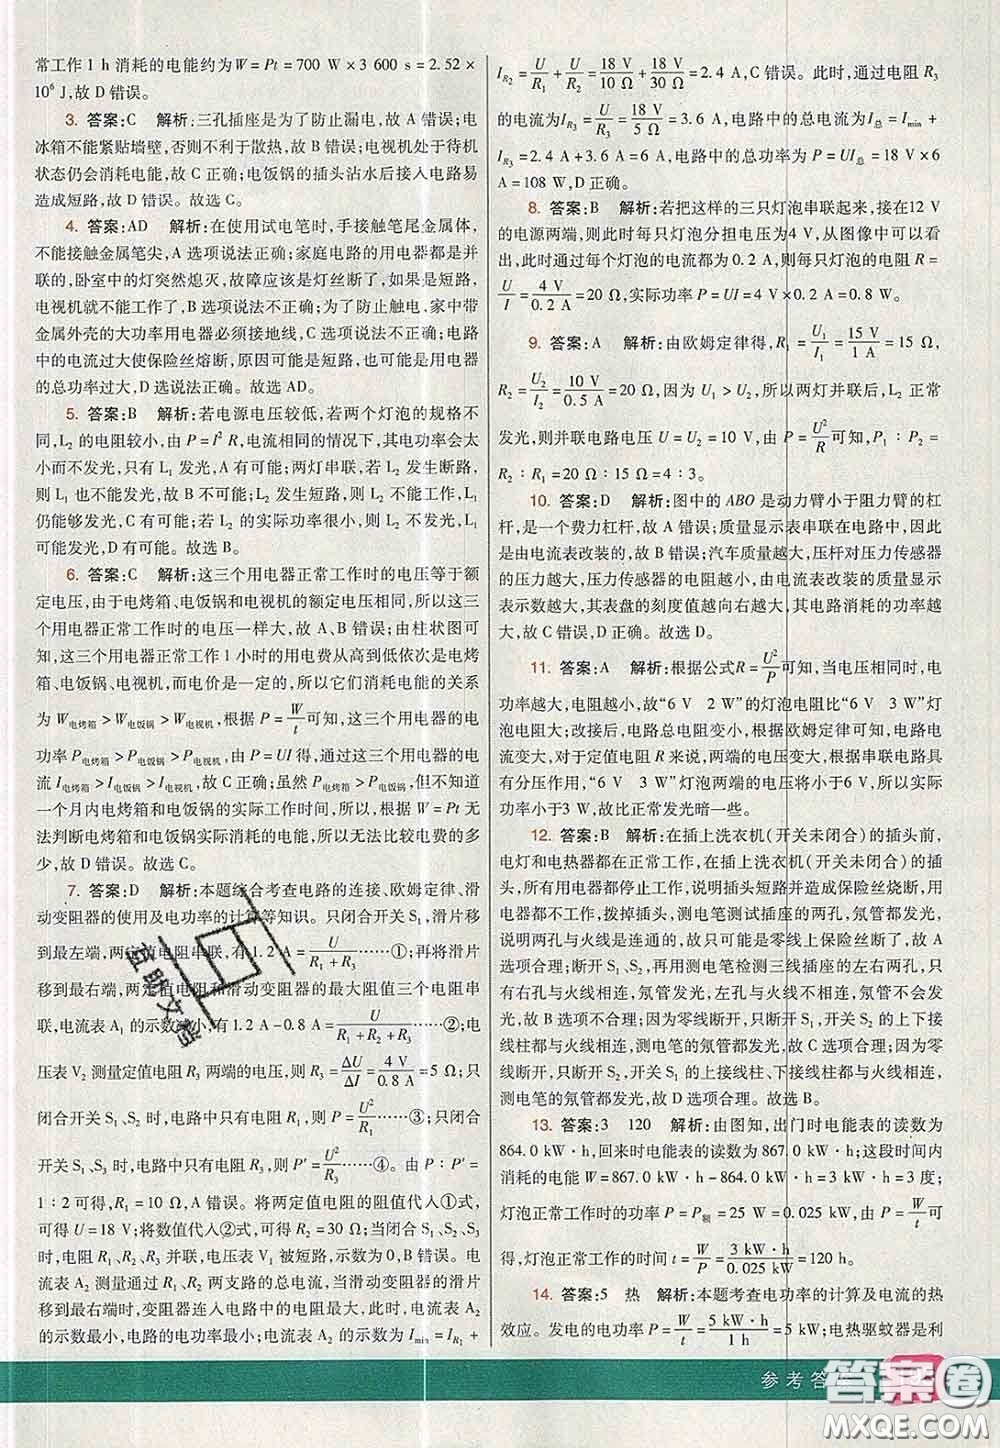 常工作1 h消耗的电能约为W=Pt=700 W×3 600 s=2.52×
10⁶ J,故D错误。
3. 答案:C 解析:三孔插座是为了防止漏电,故A错误;电
冰箱不能紧贴墙壁,否则不利于散热,故B错误;电视机处于待机
状态仍会消耗电能,故C正确;电饭锅的插头沾水后接入电路易
造成短路,故D错误。故选C。
4. 答案:AD 解析:在使用试电笔时,手接触笔尾金属体,
不能接触金属笔尖,A选项说法正确;家庭电路的用电器都是并
联的,卧室中的灯突然熄灭,故障应该是灯丝断了,如果是短路,
电视机就不能工作了,B选项说法不正确;为了防止触电,家中带
金属外壳的大功率用电器必须接地线,C选项说法不正确;电路
中的电流过大使保险丝熔断,原因可能是短路,也可能是用电器
的总功率过大,D选说法正确。故选AD。
5. 答案:B 解析:若电源电压较低,若两个灯泡的规格不
同,L₂的电阻较小,由P=I²R,电流相同的情况下,其电功率会太
小而不发光,只有L₁发光,A有可能;两灯串联,若L₂发生断路,
则L₁也不可能发光,故B不可能;L₂发生短路,则L₂不亮,L₁
仍能够发光,C有可能;若L₂的实际功率很小,则L₂不发光,L₁
可能发光,D有可能。故选B。
6. 答案:C 解析:这三个用电器正常工作时的电压等于额
定电压,由于电烤箱、电饭锅和电视机的额定电压相同,所以这三
个用电器正常工作时的电压一样大,故A、B错误;由柱状图可
知,这三个用电器正常工作1小时的用电费从高到低依次是电烤
箱、电饭锅、电视机,而电价是一定的,所以它们消耗电能的关系
为W电烤箱>W电饭锅>W电视机,根据P=W/t可知,这三个用电器的电
功率P电烤箱>P电饭锅>P电视机,由P=UI得,通过这三个用电器的电
流I电烤箱>I电饭锅>I电视机,故C正确;虽然P电烤箱>P电饭锅,但不知道
一个月内电烤箱和电饭锅的实际工作时间,所以,根据W=Pt无
法判断电烤箱和电饭锅实际消耗的电能,所以无法比较电费的多
少,故D错误。故选C。
7. 答案:D 解析:本题综合考查电路的连接、欧姆定律、滑
动变阻器的使用及电功率的计算等知识。只闭合开关S₁,滑片移
到最左端,两定值电阻串联,有1.2 A=U/(R₁+R₃)……①;再将滑片
移到最右端,两定值电阻和滑动变阻器的最大阻值三个电阻串
联,电流表A₁的示数减小,有1.2 A-0.8 A=U/(R₁+R₂+R₃)……②;电
压表V₂测量定值电阻R₃两端的电压,则R₃=ΔU/ΔI=4 V/0.8 A=5 Ω;只
闭合开关S₁、S₂时,电路中只有电阻R₁,则P=U²/R₁……③;只闭合
S₁、S₃时,电路中只有电阻R₃,则P′=U²/R₃……④。由P∶P′=
1∶2可得,R₁=10 Ω,A错误。将两定值电阻的阻值代入①式,
可得U=18 V;将数值代入②式,可得R₂=30 Ω;当闭合S₁、S₂、S₃
时,电阻R₁、R₂、R₃并联,电压表V₁被短路,示数为0,B错误。电
流表A₂测量通过R₁、R₂两支路的总电流,当滑动变阻器的滑片
移到最右端时,变阻器连入电路中的电阻最大,此时,电流表A₂
的示数最小,电路的电功率最小,总电流最小,为Imin=I R₁+
I R₂=U/R₁+U/R₂=18 V/10 Ω+18 V/30 Ω=2.4 A,C错误。此时,通过电阻R₃
的电流为I R₃=U/R₃=18 V/5 Ω=3.6 A,电路中的总电流为I总=Imin+
I R₃=2.4 A+3.6 A=6 A,电路中的总功率为P=UI总=18 V×6
A=108 W,D正确。
8. 答案:B 解析:若把这样的三只灯泡串联起来,接在12 V
的电源两端,则此时每只灯泡分担电压为4 V,从图像中可以看
出,此时通过每个灯泡的电流都为0.2 A,则每只灯泡的电阻R=
U/I=4 V/0.2 A=20 Ω,实际功率P=UI=4 V×0.2 A=0.8 W。
9. 答案:A 解析:由欧姆定律得,R₁=U₁/I₁=15 V/1 A=15 Ω,
R₂=U₂/I₂=10 V/0.5 A=20 Ω,因为U₁>U₂,所以两灯并联后,L₂正常
发光,则并联电路电压U=U₂=10 V,由P=U²/R可知,P₁∶P₂=
R₂∶R₁=20 Ω∶15 Ω=4∶3。
10. 答案:D 解析:图中的ABO是动力臂小于阻力臂的杠
杆,是一个费力杠杆,故A错误;质量显示表串联在电路中,因此
是由电流表改装的,故B错误;汽车质量越大,压杆对压力传感器
的压力越大,压力传感器的电阻越小,由电流表改装的质量显示
表示数越大,其表盘的刻度值越向右越大,其电路消耗的功率越
大,故C错误,D正确。故选D。
11. 答案:A 解析:根据公式R=U²/P可知,当电压相同时,电
功率越大,电阻越小,故“6 V 2 W”的灯泡电阻比“6 V 3 W”灯
泡电阻大;改接后,电路总电阻变小,根据欧姆定律可知,电路电
流变大,对于定值电阻R来说,两端的电压变大,根据串联电路具
有分压作用,“6 V 3 W”灯泡两端的电压将小于6 V,所以实际
功率小于3 W,故比正常发光暗一些。
12. 答案:B 解析:在插上洗衣机(开关未闭合)的插头前,
电灯和电热器都在正常工作,在插上洗衣机(开关未闭合)的插
头,所有用电器都停止工作,说明插头短路并引起保险丝烧断,用
电器都不工作,拨掉插头,测电笔测试插座的两孔,氖管都发光,
说明两孔与火线是连通的,故只可能是零线上保险丝断了,故A
选项合理;断开S₁、S₂,再用测电笔检测三线插座的左右两孔,只
有右孔与火线相连,氖管发光,左孔与火线不相连,氖管不会发
光,故B选项不合理;因为零线断开,只断开S₁,开关S₂的上下接
线柱都与火线相连,测电笔的氖管都发光,故C选项合理;因零线
断开,只断开S₂,开关S₁的上接线柱、下接线柱都与火线相连,
测电笔的氖管都发光,故D选项合理。故选B。
13. 答案:3 120 解析:由图知,出门时电能表的读数为
864.0 kW·h,回来时电能表的读数为867.0 kW·h,这段时间内
消耗的电能W=867.0 kW·h-864.0 kW·h=3 kW·h=3度;
灯泡正常工作时的功率P=P额=25 W=0.025 kW,由P=W/t可
得,灯泡正常工作的时间t=W/P=3 kW·h/0.025 kW=120 h。
14. 答案:5 热 解析:本题考查电功率的计算及电流的热
效应。发电的电功率P=W/t=5 kW·h/1 h=5 kW;电热驱蚊器是利
参考答
答案圈
MXQE.COM